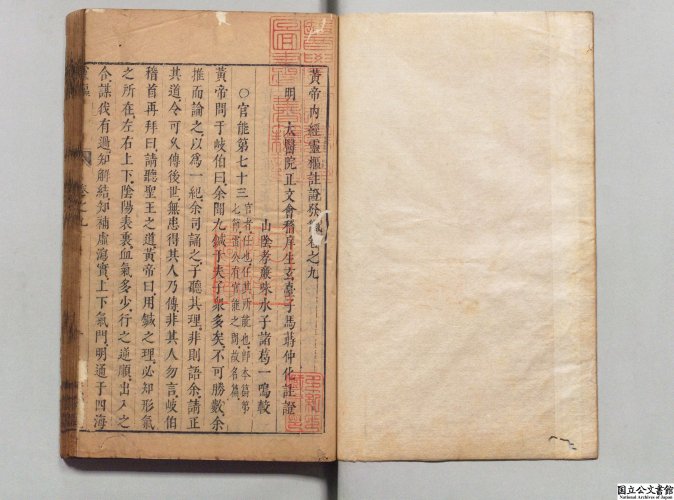 黃帝內經靈樞註證發微卷之九
明 太醫院正文會稽庠生玄臺子馬蒔仲化註證
山陰孝廉味水子諸葛一鳴較
○官能第七十三 官者任也任其所能也卽本篇第
七節雷公有官能之問故名篇
黃帝問于岐伯曰余聞九鍼于夫子衆多矣不可勝數余
推而論之以爲一紀余司誦之子聽其理非則語余請正
其道令可久傳後世無患得其人乃傳非其人勿言岐伯
稽首再拜曰請聽聖王之道黃帝曰用鍼之理必知形氣
之所在左右上下陰陽表裏血氣多少行之逆順出入之
合謀伐有過知解結知補虛瀉實上下氣門明通于四海
卷之九
国立公文書館
National Archives of Japan